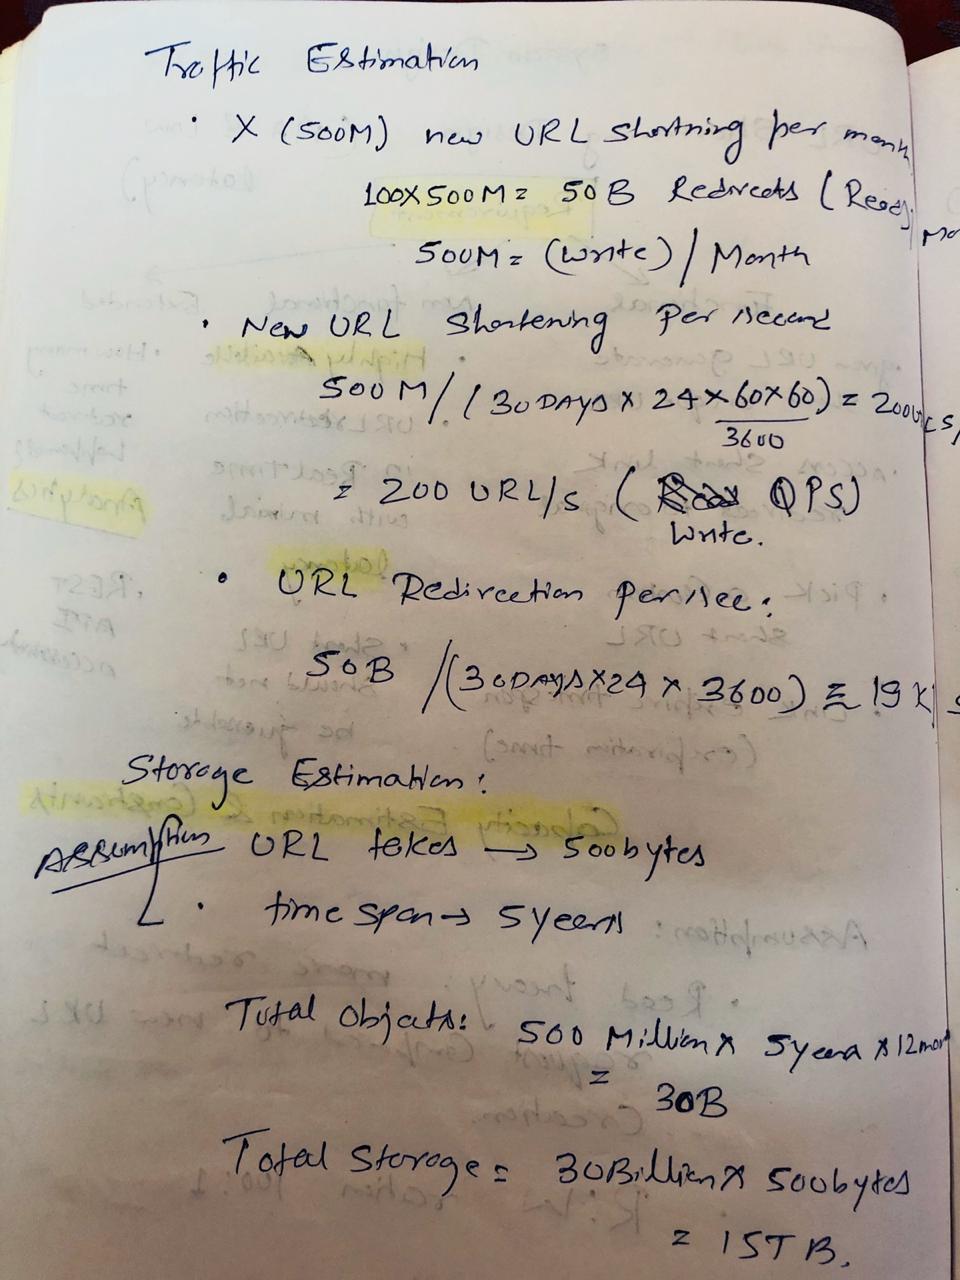 Traffic Estimation
• X (500M) new URL Shortning per month
100X500M = 50B Redirects (Reads)/
500M = (write) / Month
• New URL Shortening Per second
500M / (30DAYS X 24 X 60X60) =
3600
= 200 URL/s ( QPS)
Write.
• URL Redirection Per sec:
50B / (30DAYS X24 X 3600) = 19K/
Storage Estimation:
Assumption URL takes → 500bytes
• time span → 5years
Total Objects: 500 Million X 5years X 12
= 30B
Total Storage = 30Billion X 500bytes
= 15TB.